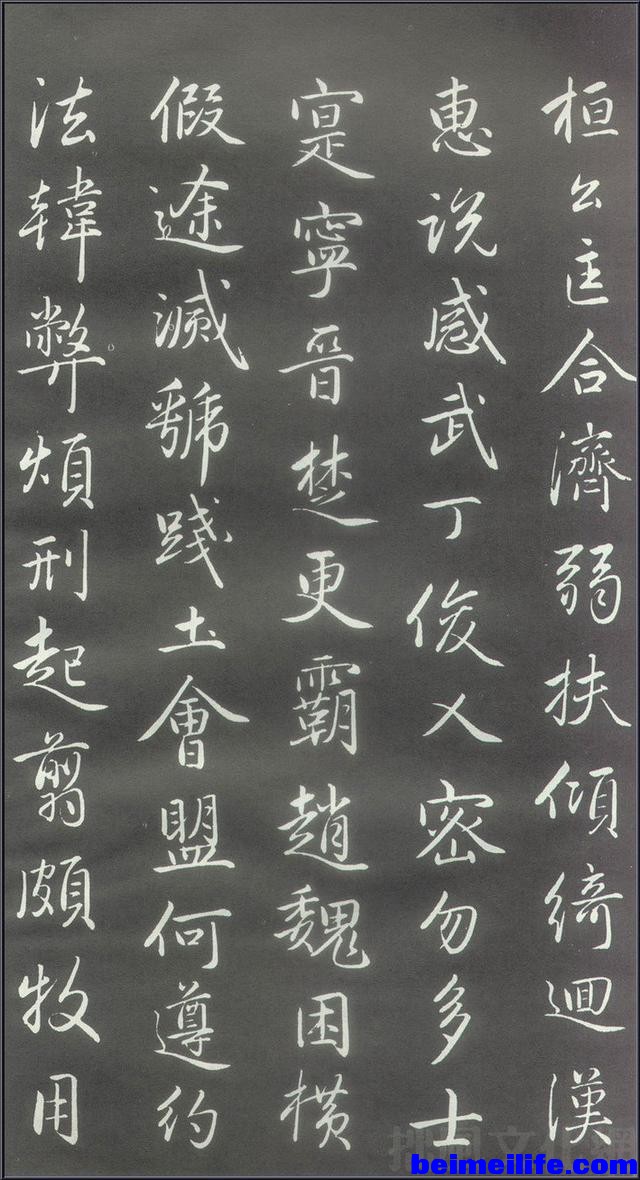 桓公匡合濟弱扶傾綺迴漢
惠説感武丁俊乂密勿多士
寔寧晋楚更霸趙魏困横
假途滅虢踐土會盟何遵約
法韓弊煩刑起翦頗牧用
beimeilife.com